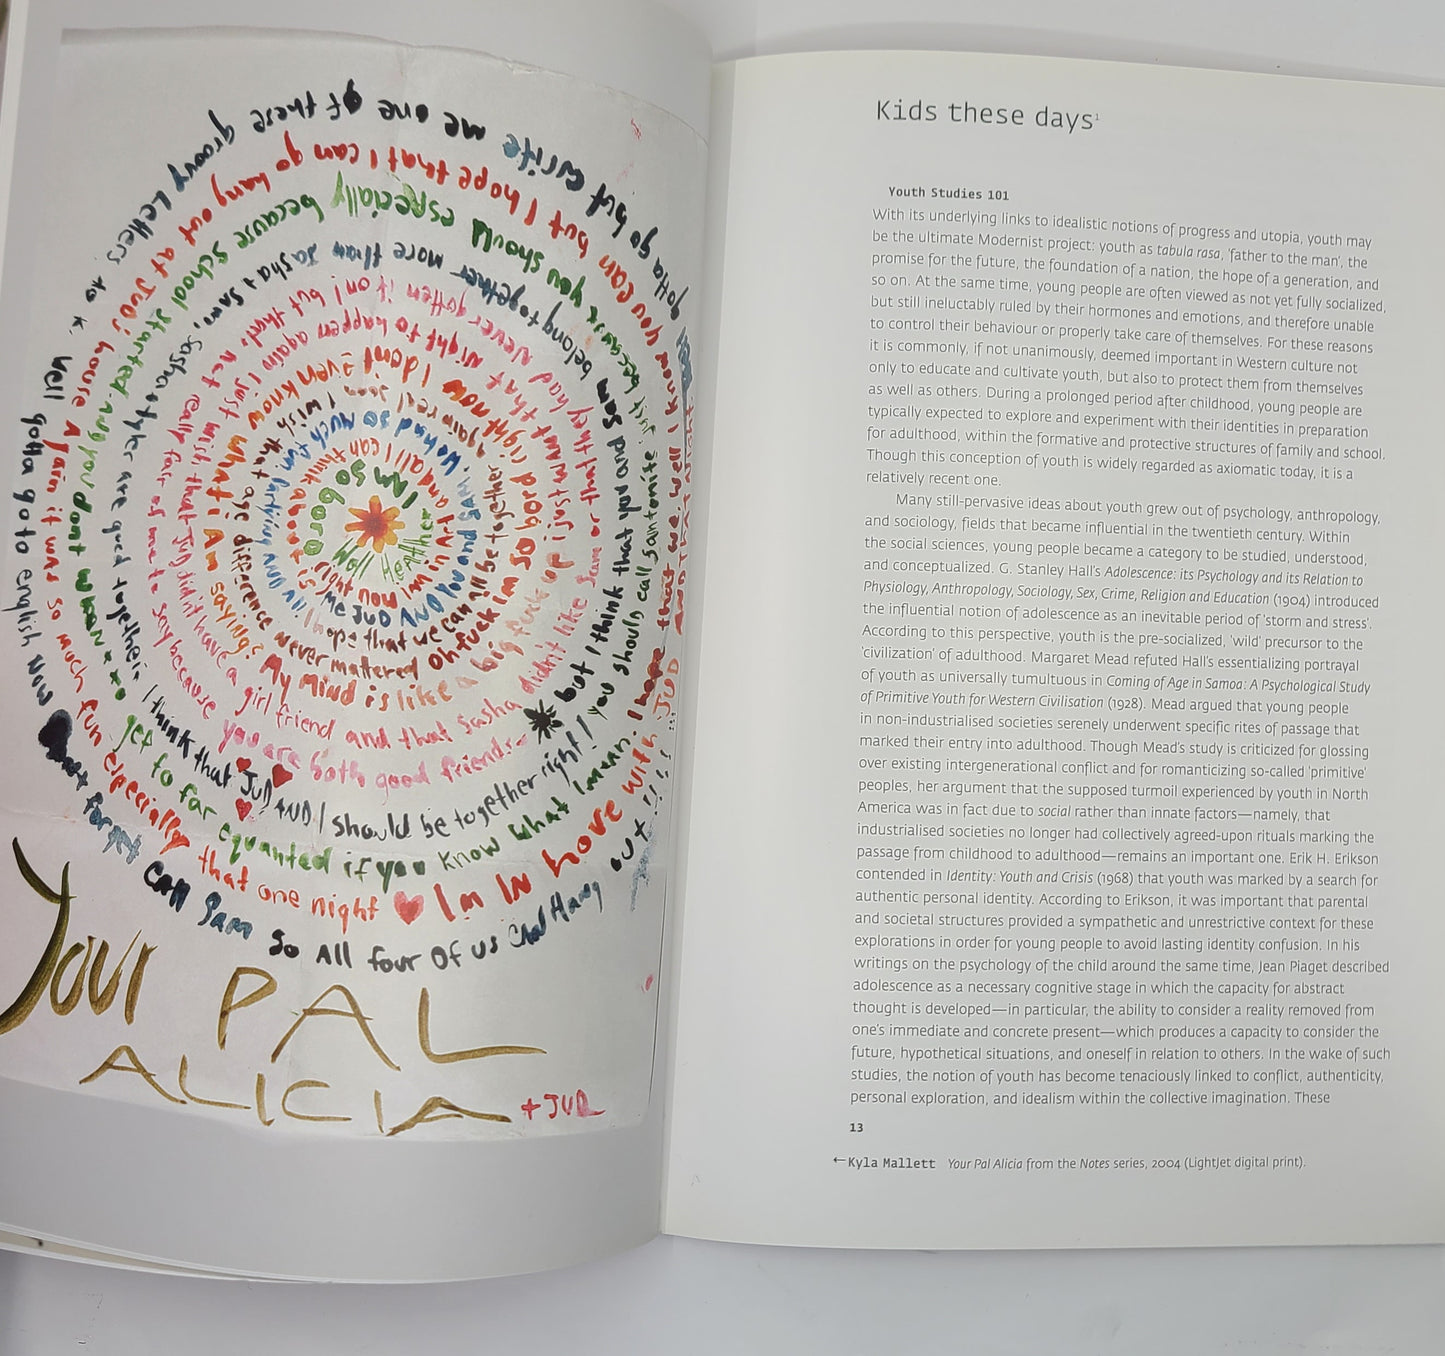 Well Heather
I am so bord
right now Im in Art and all I can think about is
Me JUD AND You and SAM. We had so much fun partying
I hope that we can all be together again real soon I wish that age difference never mattered
Oh fuck Im so bord right now I dont even know what I Am saying?
My Mind is like a big fuck up I just want that night to happen again I just wish that Jud didn't have a girl friend and that Sasha didn't like Sam or that they had never gotten it on! but that's not really fair of me to say because you are both good friends.
but I think that you and Sam belong together more than Sasha & Sam, Sasha & tyler are good together. I think that Jud AND I should be together right! you should call Sam tonite
just because you should especially because school started. and you dont want to get to far equanted if you know what I mean. I hope that we. well I know you can
but I hope that I can go hang out at Jud's house Again it was so much fun especially that one night
Im In love with JUD
AND THAT NIGHT
gotta go but write me one of these groovy Letters to k.
well gotta go to english now
not forget CAll Sam So All four Of us Can Hang out!!!!
Your PAL
ALICIA
+ JUD
Kids these days¹
Youth Studies 101
With its underlying links to idealistic notions of progress and utopia, youth may
be the ultimate Modernist project: youth as tabula rasa, 'father to the man', the
promise for the future, the foundation of a nation, the hope of a generation, and
so on. At the same time, young people are often viewed as not yet fully socialized,
but still ineluctably ruled by their hormones and emotions, and therefore unable
to control their behaviour or properly take care of themselves. For these reasons
it is commonly, if not unanimously, deemed important in Western culture not
only to educate and cultivate youth, but also to protect them from themselves
as well as others. During a prolonged period after childhood, young people are
typically expected to explore and experiment with their identities in preparation
for adulthood, within the formative and protective structures of family and school.
Though this conception of youth is widely regarded as axiomatic today, it is a
relatively recent one.
Many still-pervasive ideas about youth grew out of psychology, anthropology,
and sociology, fields that became influential in the twentieth century. Within
the social sciences, young people became a category to be studied, understood,
and conceptualized. G. Stanley Hall's Adolescence: its Psychology and its Relation to
Physiology, Anthropology, Sociology, Sex, Crime, Religion and Education (1904) introduced
the influential notion of adolescence as an inevitable period of 'storm and stress'.
According to this perspective, youth is the pre-socialized, 'wild' precursor to the
'civilization' of adulthood. Margaret Mead refuted Hall's essentializing portrayal
of youth as universally tumultuous in Coming of Age in Samoa: A Psychological Study
of Primitive Youth for Western Civilisation (1928). Mead argued that young people
in non-industrialised societies serenely underwent specific rites of passage that
marked their entry into adulthood. Though Mead's study is criticized for glossing
over existing intergenerational conflict and for romanticizing so-called 'primitive'
peoples, her argument that the supposed turmoil experienced by youth in North
America was in fact due to social rather than innate factors—namely, that
industrialised societies no longer had collectively agreed-upon rituals marking the
passage from childhood to adulthood—remains an important one. Erik H. Erikson
contended in Identity: Youth and Crisis (1968) that youth was marked by a search for
authentic personal identity. According to Erikson, it was important that parental
and societal structures provided a sympathetic and unrestrictive context for these
explorations in order for young people to avoid lasting identity confusion. In his
writings on the psychology of the child around the same time, Jean Piaget described
adolescence as a necessary cognitive stage in which the capacity for abstract
thought is developed—in particular, the ability to consider a reality removed from
one's immediate and concrete present—which produces a capacity to consider the
future, hypothetical situations, and oneself in relation to others. In the wake of such
studies, the notion of youth has become tenaciously linked to conflict, authenticity,
personal exploration, and idealism within the collective imagination. These
13
←Kyla Mallett Your Pal Alicia from the Notes series, 2004 (LightJet digital print).